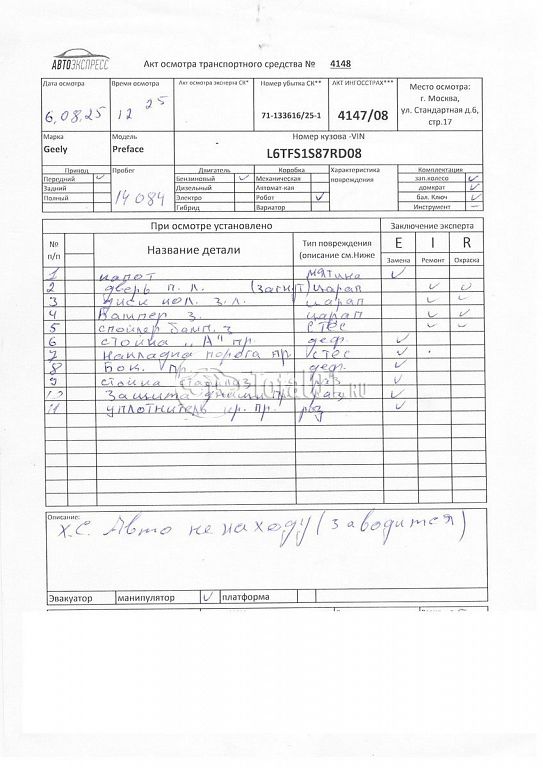 АВТОЭКСПРЕСС
Акт осмотра транспортного средства № 4148
Дата осмотра Время осмотра Акт осмотра эксперта СК* Номер убытка СК** АКТ ИНГОССТРАХ*** Место осмотра:
6,08,25 12 25 71-133616/25-1 4147/08 г. Москва,
ул. Стандартная д.6,
стр.17
Марка Модель Номер кузова -VIN
Geely Preface L6TFS1S87RD08
Привод Пробег Двигатель Коробка Характеристика Комплектация
Передний Бензиновый Механическая повреждения зап.колесо
Задний Дизельный Автомат-кая домкрат
Полный 14 084 Электро Робот бал. Ключ
Гибрид Вариатор Инструмент
При осмотре установлено Заключение эксперта
№ п/п Название детали Тип повреждения (описание см.Ниже E I R
Замена Ремонт Окраска
1 капот мятина
2 дверь п. л. (загнут) царап
3 диск кол. з.л. царап
4 Бампер з. царап
5 спойлер бамп. з стес
6 стойка „А" пр. деф.
7 накладка порога пр стес
8 Бок. пр. деф.
9 стойка раз
10 Защита
11 уплотнитель пр. раз
TotalR.ru
Описание:
Х.С. Авто не на ходу (заводится)
Эвакуатор манипулятор платформа